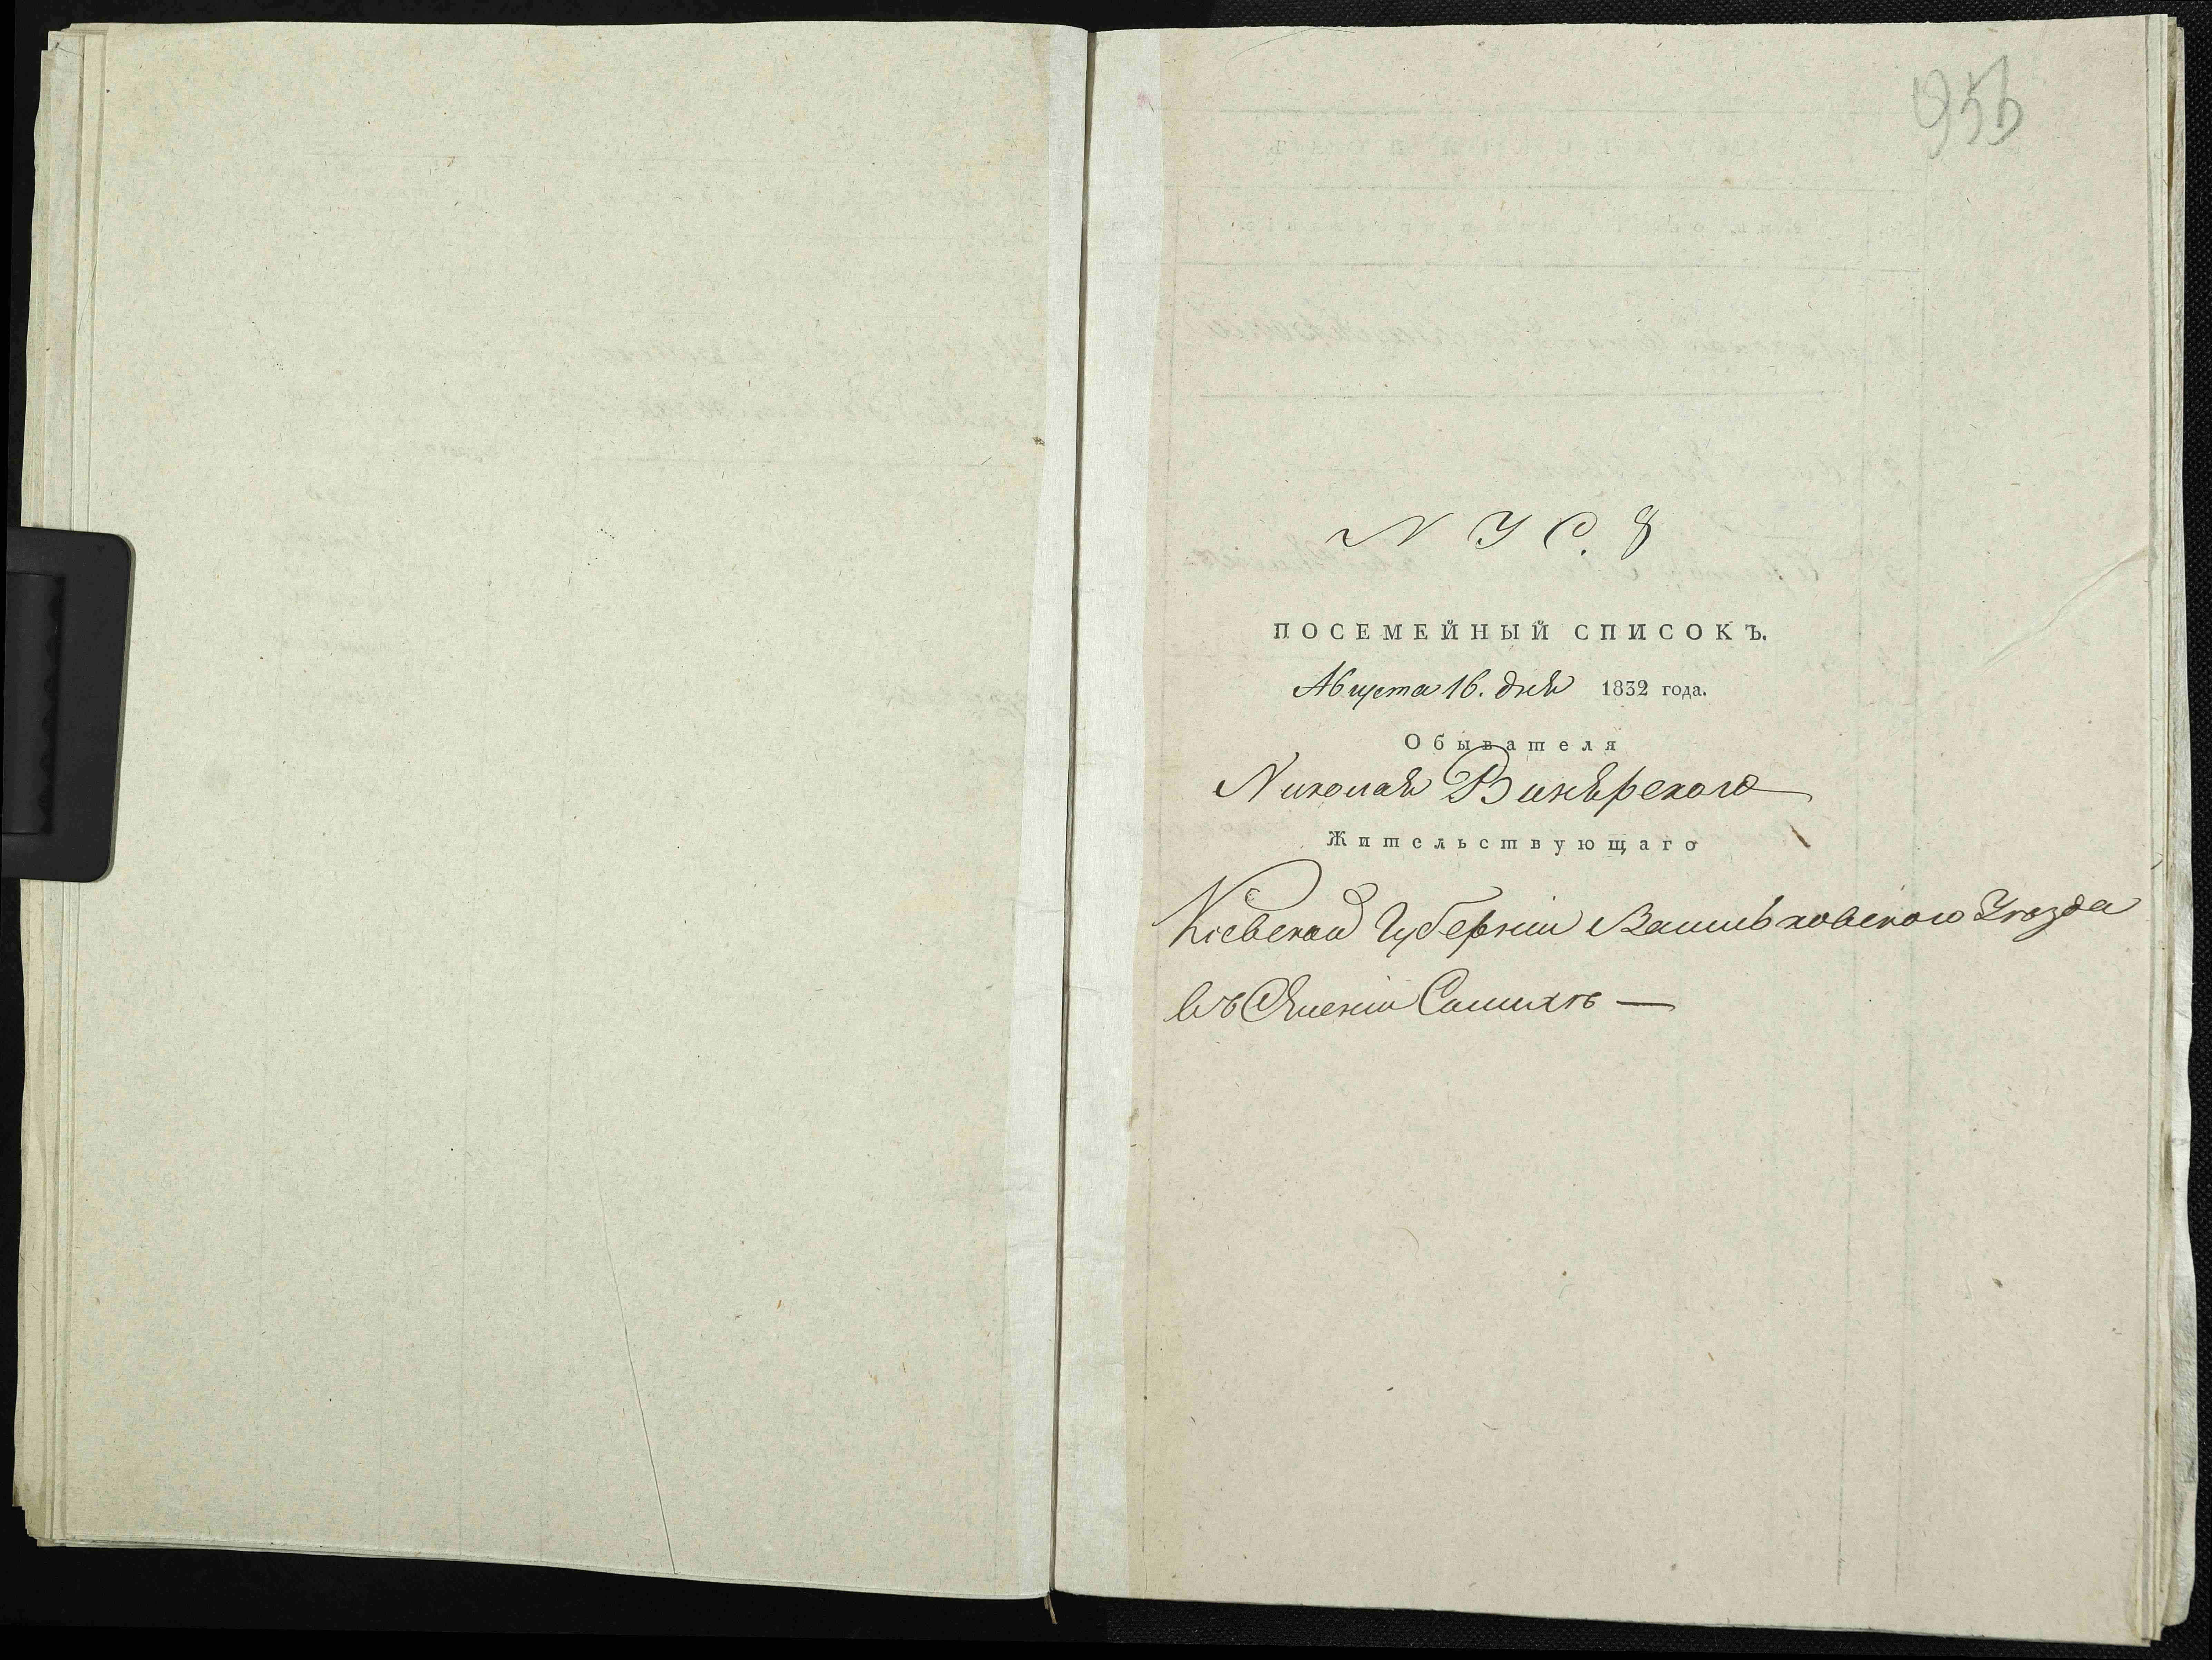 N У С. 8
ПОСЕМЕЙНЫЙ СПИСОКЪ.
Августа 16. дня 1832 года.
Обывателя
Николая Винярского
Жительствующаго
Кіевской Губерніи Васильковского Уѣзда
въ Имѣніи